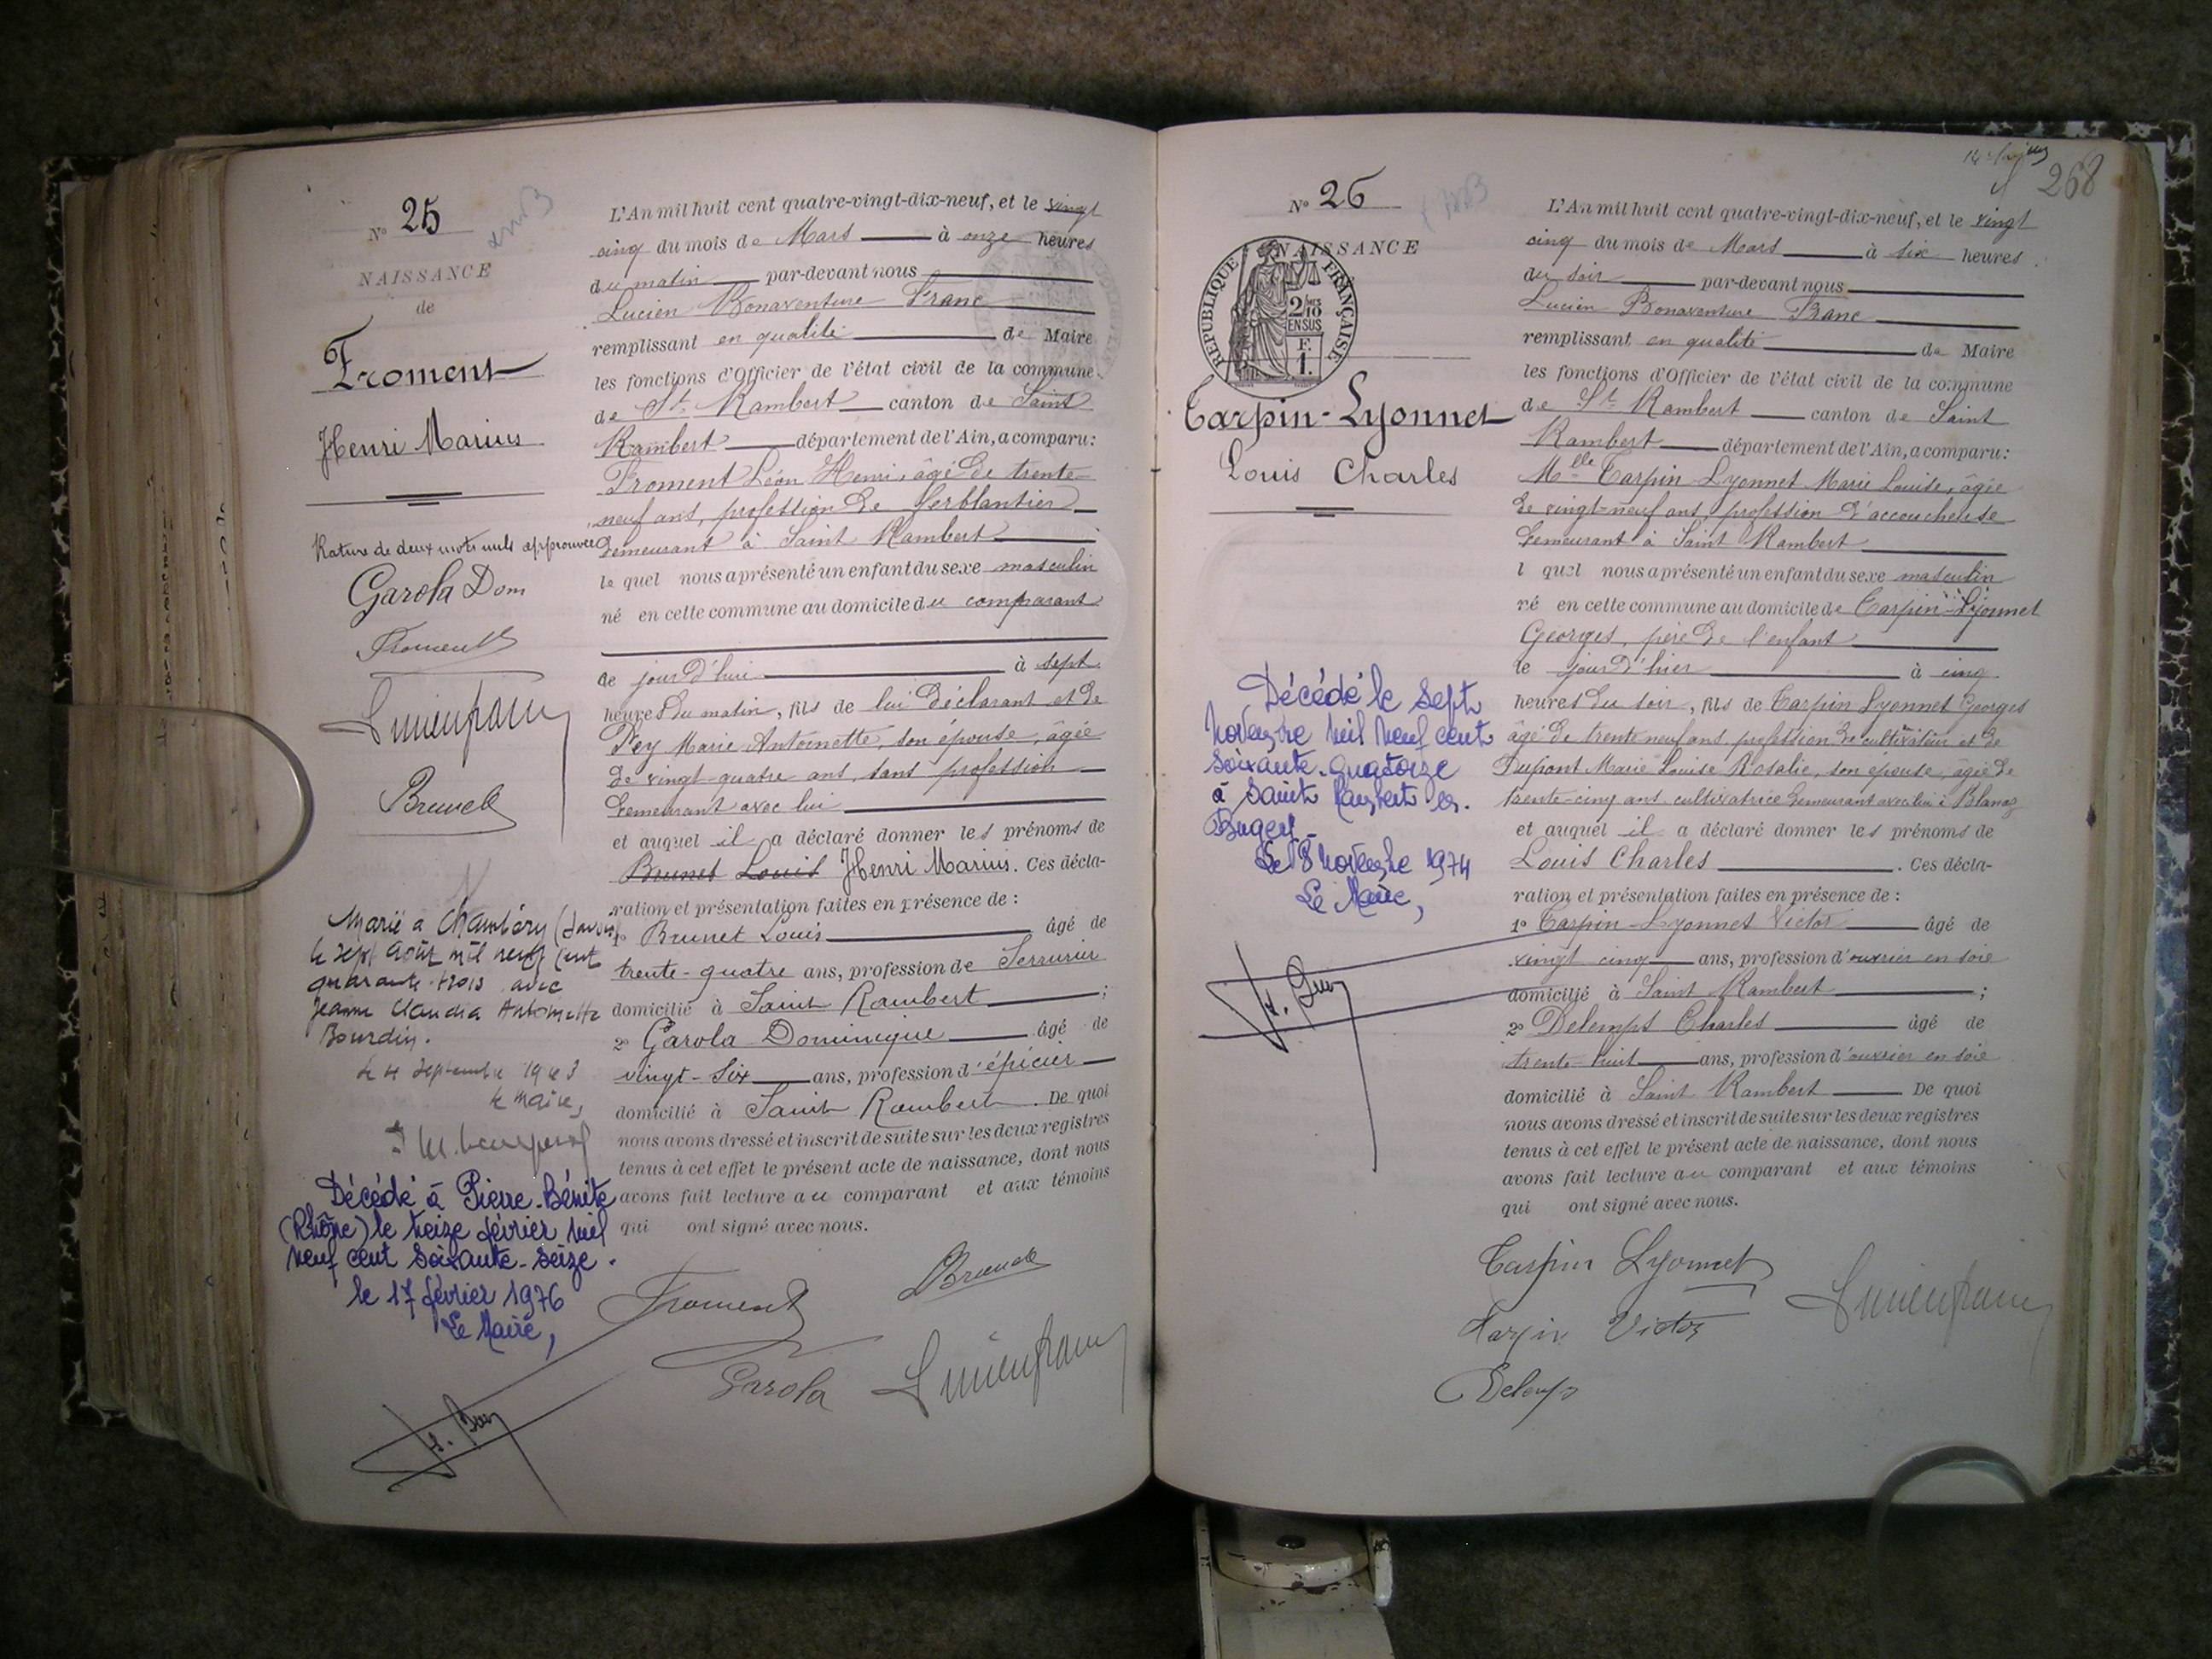 Nº 25
NAISSANCE
de
Froment
Henri Marius
Rature de deux mots nuls approuvée
Garola Dom
Froment
Lucien Franc
Brunet
Marié à Chambéry (Savoie)
le sept Août mil neuf cent
quarante-trois avec
Jeanne Claudia Antoinette
Bourdin.
Le 4 Septembre 1943
le Maire,
Décédé à Pierre-Bénite
(Rhône) le treize février mil
neuf cent soixante-seize.
le 17 février 1976
Le Maire,
L'An mil huit cent quatre-vingt-dix-neuf, et le vingt
cinq du mois de Mars à onze heures
du matin par-devant nous
Lucien Bonaventure Franc
remplissant en qualité de Maire
les fonctions d'Officier de l'état civil de la commune
de St Rambert canton de Saint
Rambert département de l'Ain, a comparu:
Froment Léon Henri, âgé de trente-
neuf ans, profession de ferblantier
demeurant à Saint Rambert
le quel nous a présenté un enfant du sexe masculin
né en cette commune au domicile du comparant
ce jourd'hui à sept
heures du matin, fils de lui déclarant et de
Pey Marie Antoinette, son épouse, âgée
de vingt-quatre ans, sans profession
demeurant avec lui
et auquel il a déclaré donner les prénoms de
Brunet Louis Henri Marius. Ces décla-
ration et présentation faites en présence de :
1º Brunet Louis âgé de
trente-quatre ans, profession de Serrurier
domicilié à Saint Rambert ;
2º Garola Dominique âgé de
vingt-six ans, profession d'épicier
domicilié à Saint Rambert. De quoi
nous avons dressé et inscrit de suite sur les deux registres
tenus à cet effet le présent acte de naissance, dont nous
avons fait lecture au comparant et aux témoins
qui ont signé avec nous.
Froment Brunet
Garola Lucien Franc
268
Nº 26
NAISSANCE
REPUBLIQUE FRANÇAISE
2/10MES
EN SUS
F.
1.
Tarpin-Lyonnet
Louis Charles
Décédé le sept
Novembre mil neuf cent
soixante-quatorze
à Saint Rambert en
Bugey.
Le 8 Novembre 1974
Le Maire,
L'An mil huit cent quatre-vingt-dix-neuf, et le vingt
cinq du mois de Mars à six heures
du soir par-devant nous
Lucien Bonaventure Franc
remplissant en qualité de Maire
les fonctions d'Officier de l'état civil de la commune
de St Rambert canton de Saint
Rambert département de l'Ain, a comparu:
Melle Tarpin-Lyonnet Marie Louise, âgée
de vingt-neuf ans, profession d'accoucheuse
demeurant à Saint Rambert
l quel nous a présenté un enfant du sexe masculin
né en cette commune au domicile de Tarpin-Lyonnet
Georges, père de l'enfant
le jour d'hier à cinq
heures du soir, fils de Tarpin Lyonnet Georges
âgé de trente neuf ans profession de cultivateur et de
Dupont Marie Louise Rosalie, son épouse, âgée de
trente-cinq ans cultivatrice demeurant avec lui à Blanaz
et auquel il a déclaré donner les prénoms de
Louis Charles . Ces décla-
ration et présentation faites en présence de :
1º Tarpin-Lyonnet Victor âgé de
vingt cinq ans, profession d'ouvrier en soie
domicilié à Saint Rambert ;
2º Delemps Charles âgé de
trente huit ans, profession d'ouvrier en soie
domicilié à Saint Rambert De quoi
nous avons dressé et inscrit de suite sur les deux registres
tenus à cet effet le présent acte de naissance, dont nous
avons fait lecture au comparant et aux témoins
qui ont signé avec nous.
Tarpin Lyonnet
Tarpin Victor Lucien Franc